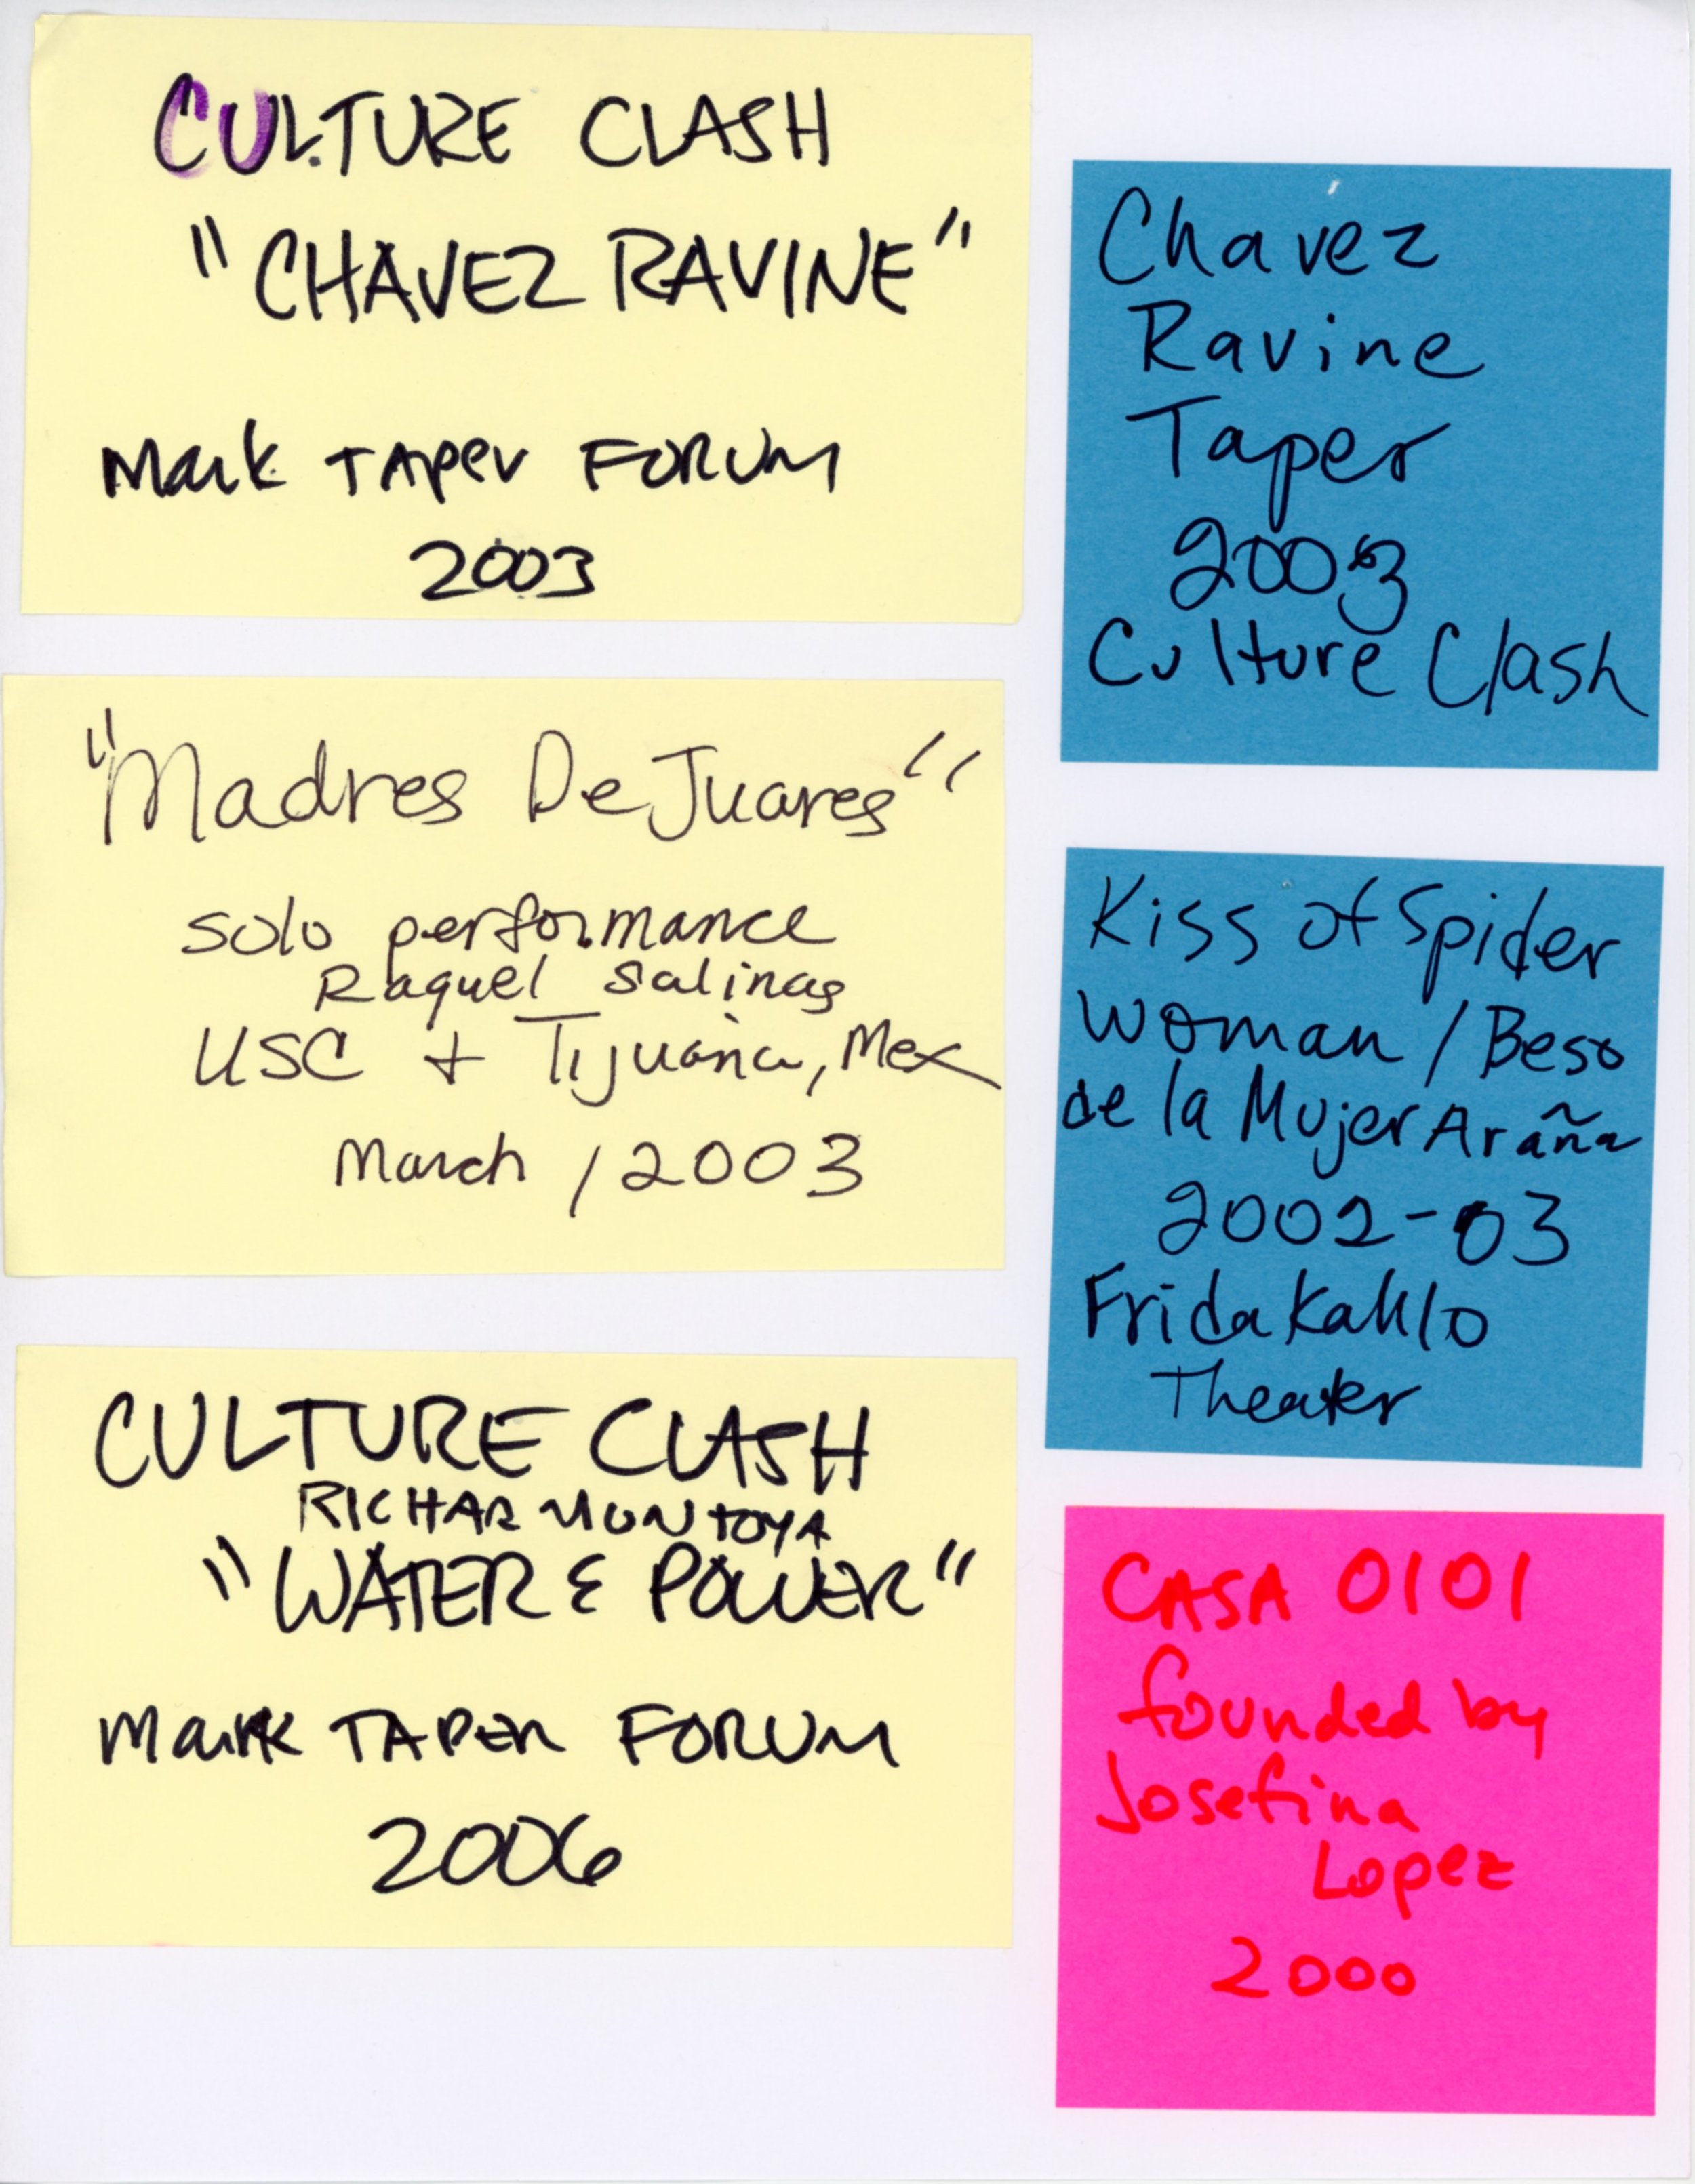 CULTURE CLASH
"CHAVEZ RAVINE"
Mark TAper FORUM
2003
"Madres De Juares"
solo performance
Raquel Salinas
USC + Tijuana, Mex
March / 2003
CULTURE CLASH
RICHAR MONTOYA
"WATER & POWER"
Mark TAPER FORUM
2006
Chavez
Ravine
Taper
2003
Culture Clash
Kiss of Spider
Woman / Beso
de la Mujer Araña
2002-03
Frida Kahlo
Theater
CASA 0101
founded by
Josefina
Lopez
2000